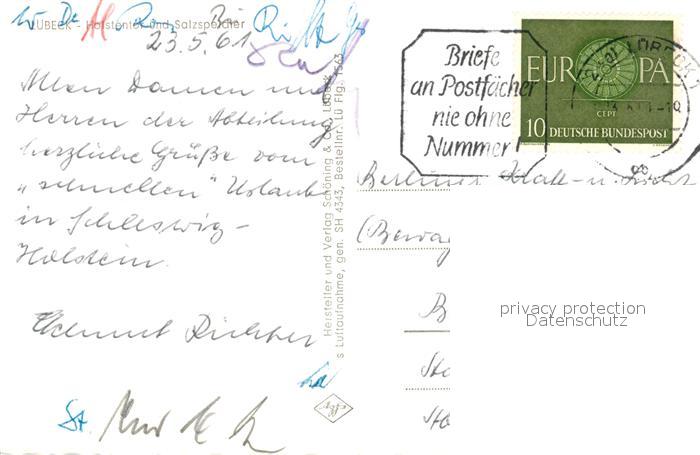 LÜBECK - Holstentor und Salzspeicher
23.5.61
Allen Damen und
Herren der Abteilung
herzliche Grüße vom
„schnellen" Urlaub
in Schleswig-
Holstein.
Helmut Richter
St.
Hersteller und Verlag Schöning & Co., Lübeck
s Luftaufnahme, gen. SH 4343, Bestellnr. Lü Flg. 1563
Briefe
an Postfächer
nie ohne
Nummer!
LÜBECK
EUROPA
CEPT
10 DEUTSCHE BUNDESPOST
Berliner Kraft- u. Licht
(Bewag
privacy protection
Datenschutz